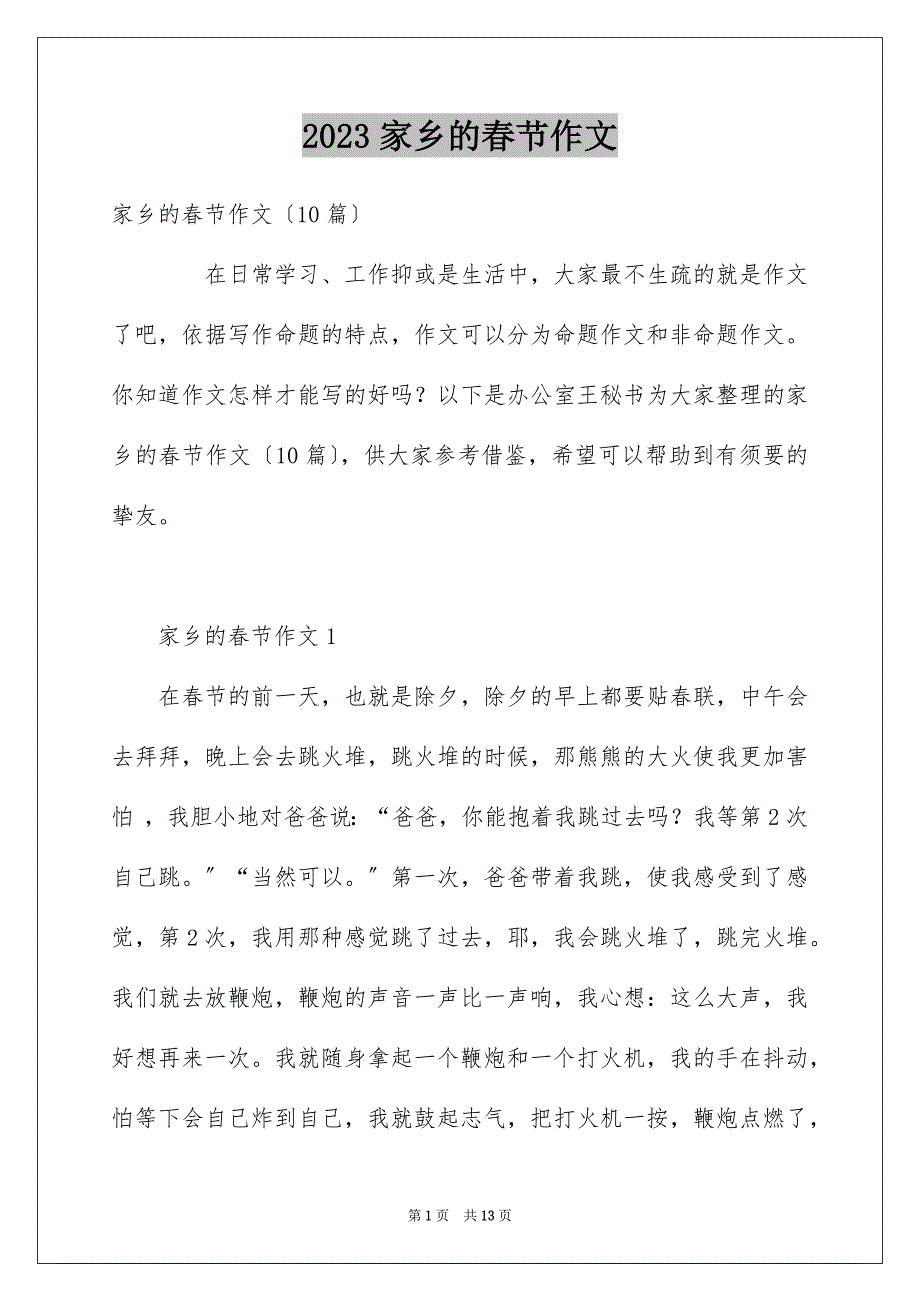 2023家乡的春节作文
家乡的春节作文〔10 篇〕
在日常学习、工作抑或是生活中，大家最不生疏的就是作文
了吧，依据写作命题的特点，作文可以分为命题作文和非命题作文。
你知道作文怎样才能写的好吗？以下是办公室王秘书为大家整理的家
乡的春节作文〔10 篇〕，供大家参考借鉴，希望可以帮助到有须要的
挚友。
家乡的春节作文 1
在春节的前一天，也就是除夕，除夕的早上都要贴春联，中午会
去拜拜，晚上会去跳火堆，跳火堆的时候，那熊熊的大火使我更加害
怕 ，我胆小地对爸爸说：“爸爸，你能抱着我跳过去吗？我等第 2 次
自己跳。〞“当然可以。〞第一次，爸爸带着我跳，使我感受到了感
觉，第 2 次，我用那种感觉跳了过去，耶，我会跳火堆了，跳完火堆。
我们就去放鞭炮，鞭炮的声音一声比一声响，我心想：这么大声，我
好想再来一次。我就随身拿起一个鞭炮和一个打火机，我的手在抖动，
怕等下会自己炸到自己，我就鼓起志气，把打火机一按，鞭炮点燃了，
第 1 页 共 13 页